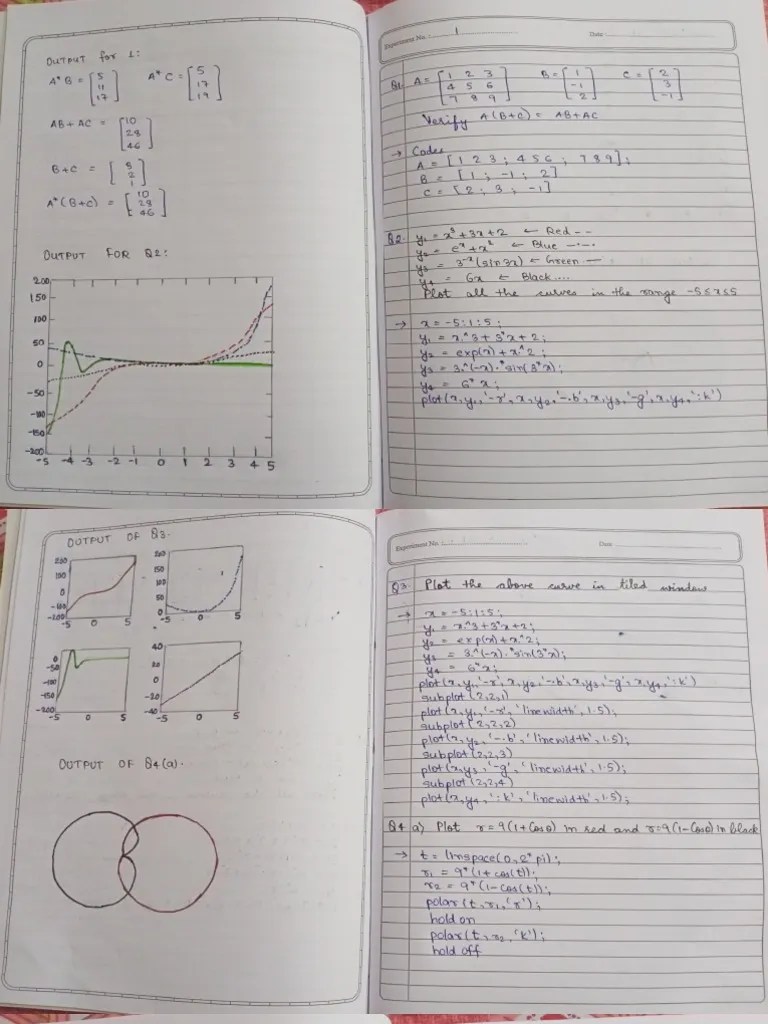 OUTPUT for 1:
A*B = [5 11 17] A*C = [5 17 19]
AB + AC = [10 28 46]
B+C = [3 2 1]
A*(B+C) = [10 28 46]
OUTPUT FOR Q2:
200
150
100
50
0
-50
-100
-150
-200
-5 -4 -3 -2 -1 0 1 2 3 4 5
Experiment No. : 1 Date :
Q1 A = [1 2 3 4 5 6 7 8 9] B = [1 -1 2] C = [2 3 -1]
Verify A(B+C) = AB+AC
→ Codes
A = [1 2 3 ; 4 5 6 ; 7 8 9];
B = [1 ; -1 ; 2]
C = [2 ; 3 ; -1]
Q2. y₁ = x³+3x+2 ← Red --
y₂ = eˣ+x² ← Blue -.-.
y₃ = 3⁻ˣ(sin3x) ← Green —
y₄ = 6x ← Black ....
Plot all the curves in the range -5≤x≤5
→ x = -5:1:5;
y₁ = x.^3+3*x+2;
y₂ = exp(x)+x.^2;
y₃ = 3.^(-x).*sin(3*x);
y₄ = 6*x;
plot(x,y₁,'-r',x,y₂,'-.b',x,y₃,'-g',x,y₄,':k')
OUTPUT OF Q3.
200
150
0
-100
-200
-5 0 5
200
150
100
50
0
-5 0 5
0
-50
-100
-150
-200
-5 0 5
40
20
0
-20
-40
-5 0 5
OUTPUT OF Q4(a).
Experiment No. : Date :
Q3 Plot the above curve in tiled window
→ x = -5:1:5;
y₁ = x.^3+3*x+2;
y₂ = exp(x)+x.^2;
y₃ = 3.^(-x).*sin(3*x);
y₄ = 6*x;
plot(x,y₁,'-r',x,y₂,'-.b',x,y₃,'-g',x,y₄,':k')
subplot(2,2,1)
plot(x,y₁,'-r','linewidth',1.5);
subplot(2,2,2)
plot(x,y₂,'-.b','linewidth',1.5);
subplot(2,2,3)
plot(x,y₃,'-g','linewidth',1.5);
subplot(2,2,4)
plot(x,y₄,':k','linewidth',1.5);
Q4 a) Plot r=9(1+cosθ) in red and r=9(1-cosθ) in black
→ t = linspace(0,2*pi);
r₁ = 9*(1+cos(t));
r₂ = 9*(1-cos(t));
polar(t,r₁,'r');
hold on
polar(t,r₂,'k');
hold off